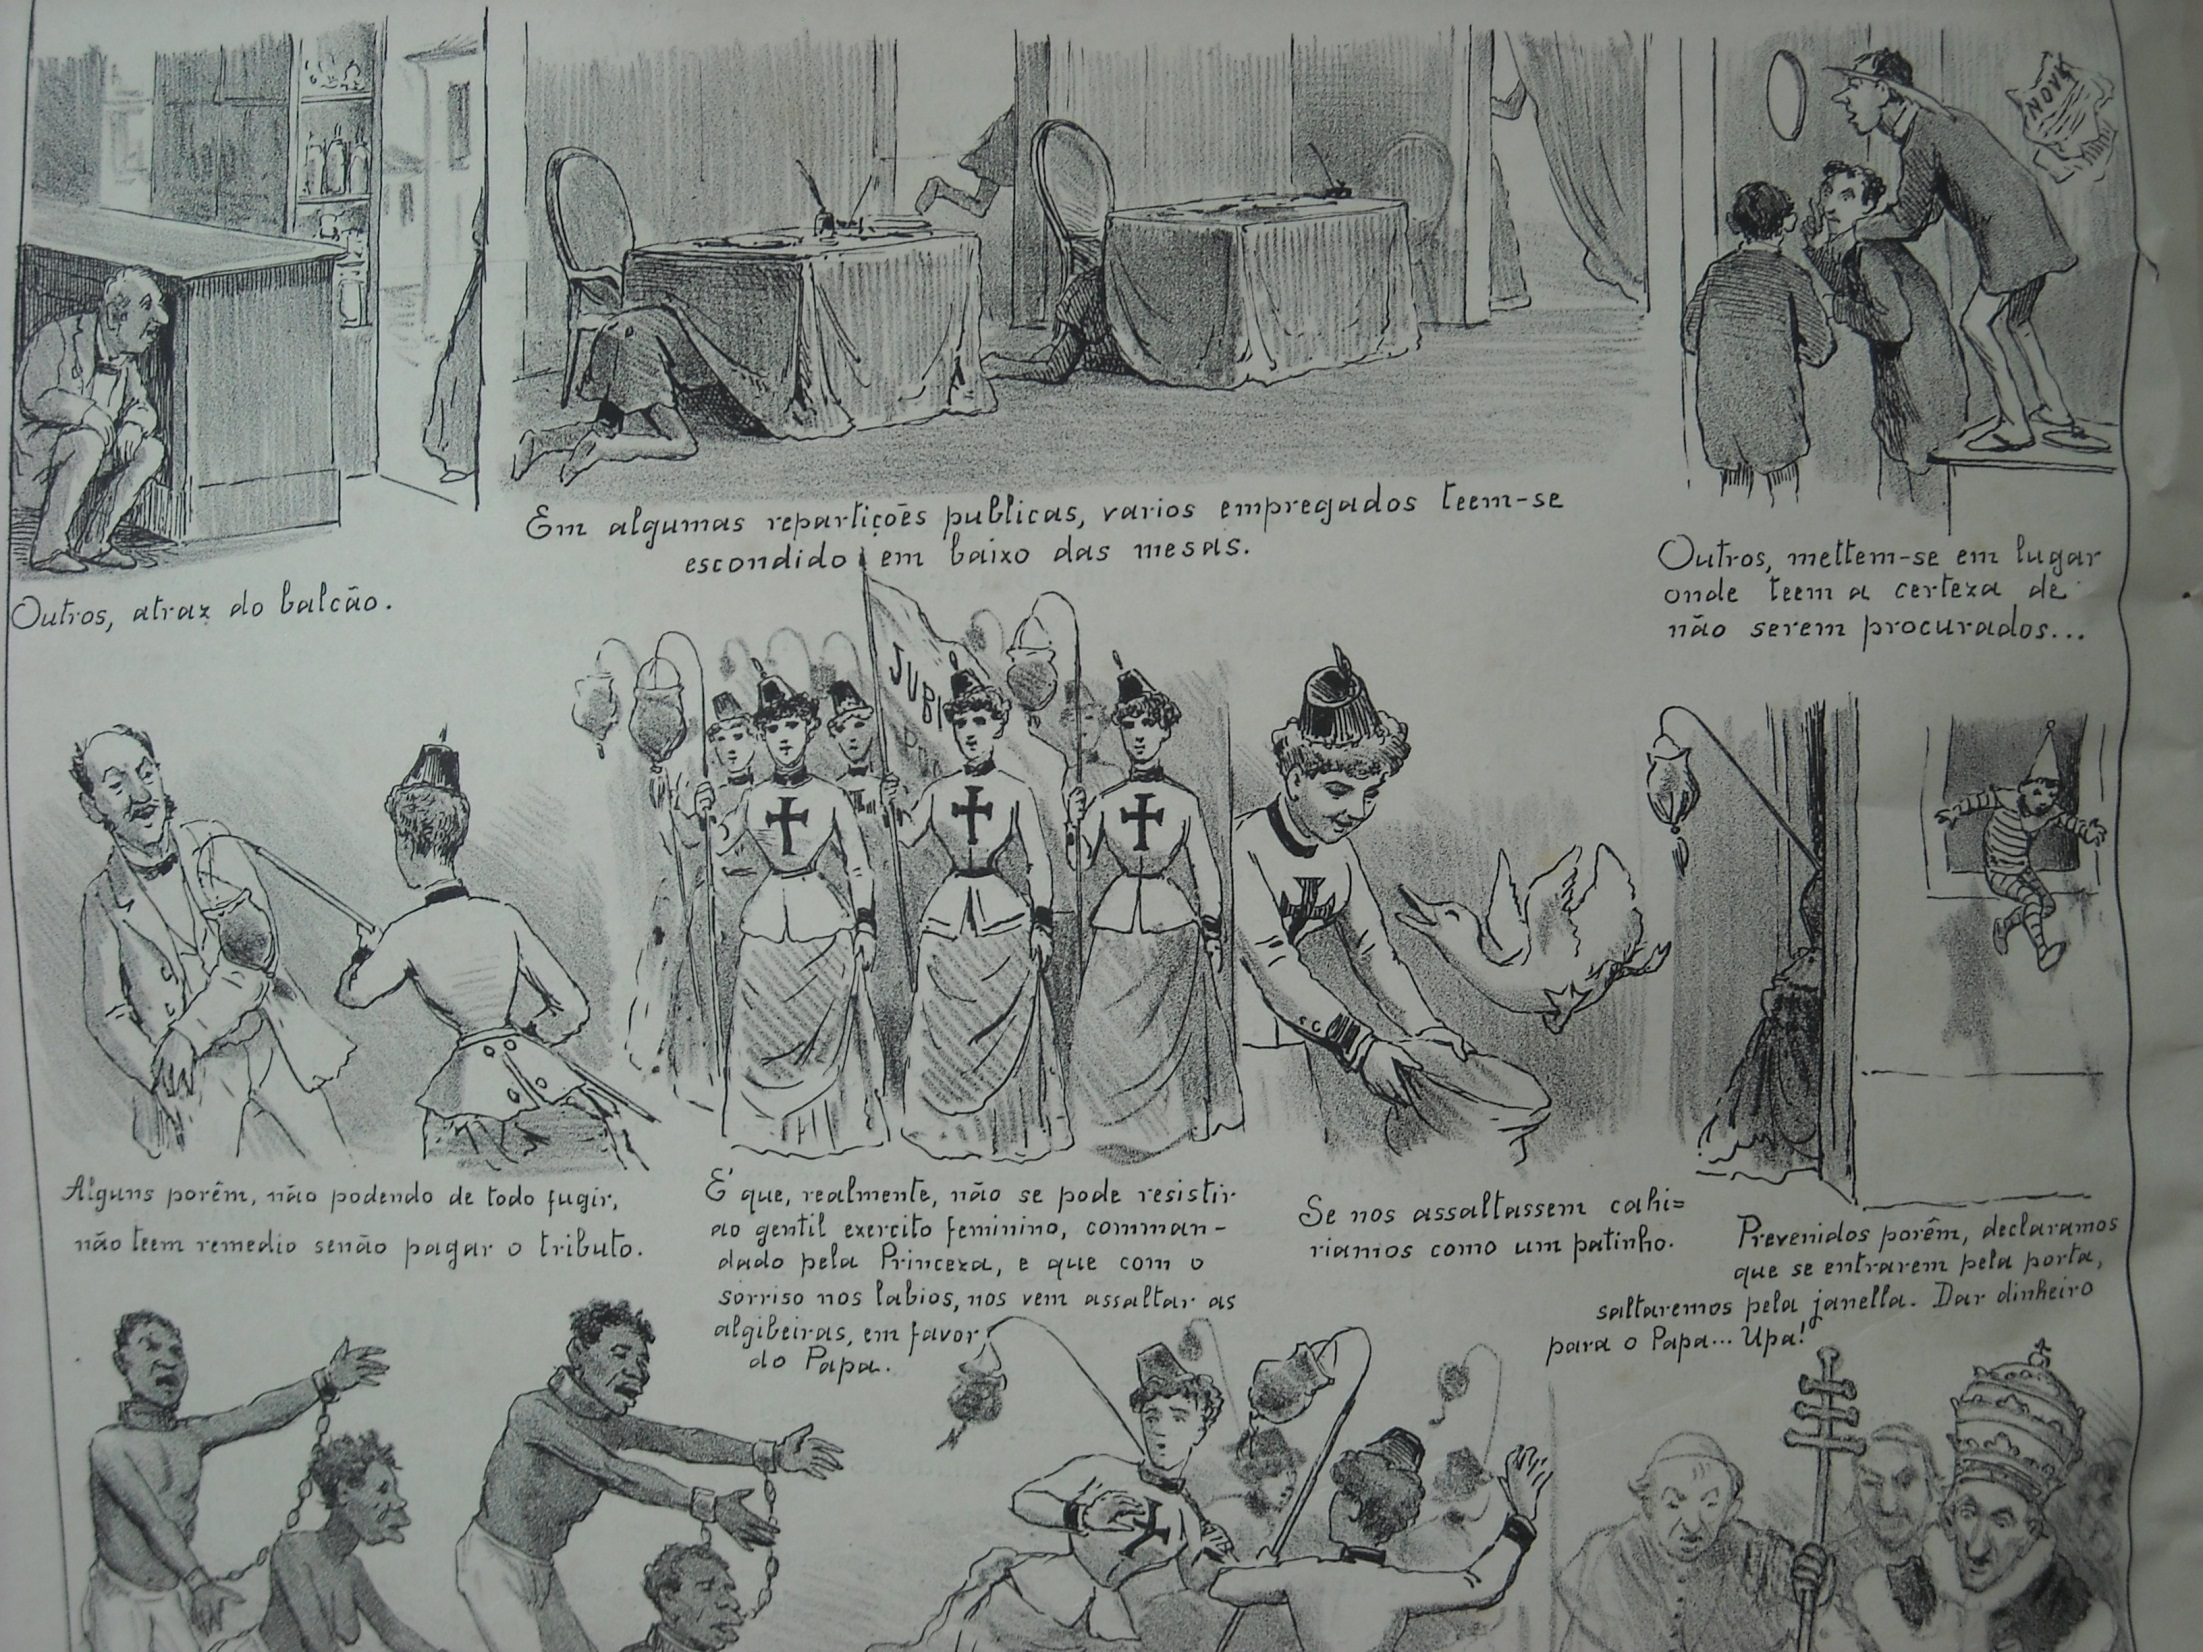 NOVI
Outros, atraz do balcão.
Em algumas repartições publicas, varios empregados teem-se
escondido em baixo das mesas.
Outros, mettem-se em lugar
onde teem a certeza de
não serem procurados...
JUBI
Alguns porêm, não podendo de todo fugir,
não teem remedio senão pagar o tributo.
E' que, realmente, não se pode resistir
ao gentil exercito feminino, comman-
dado pela Princeza, e que com o
sorriso nos labios, nos vem assaltar as
algibeiras, em favor
do Papa.
Se nos assaltassem cahi=
riamos como um patinho.
Prevenidos porêm, declaramos
que se entrarem pela porta,
saltaremos pela janella. Dar dinheiro
para o Papa... Upa!